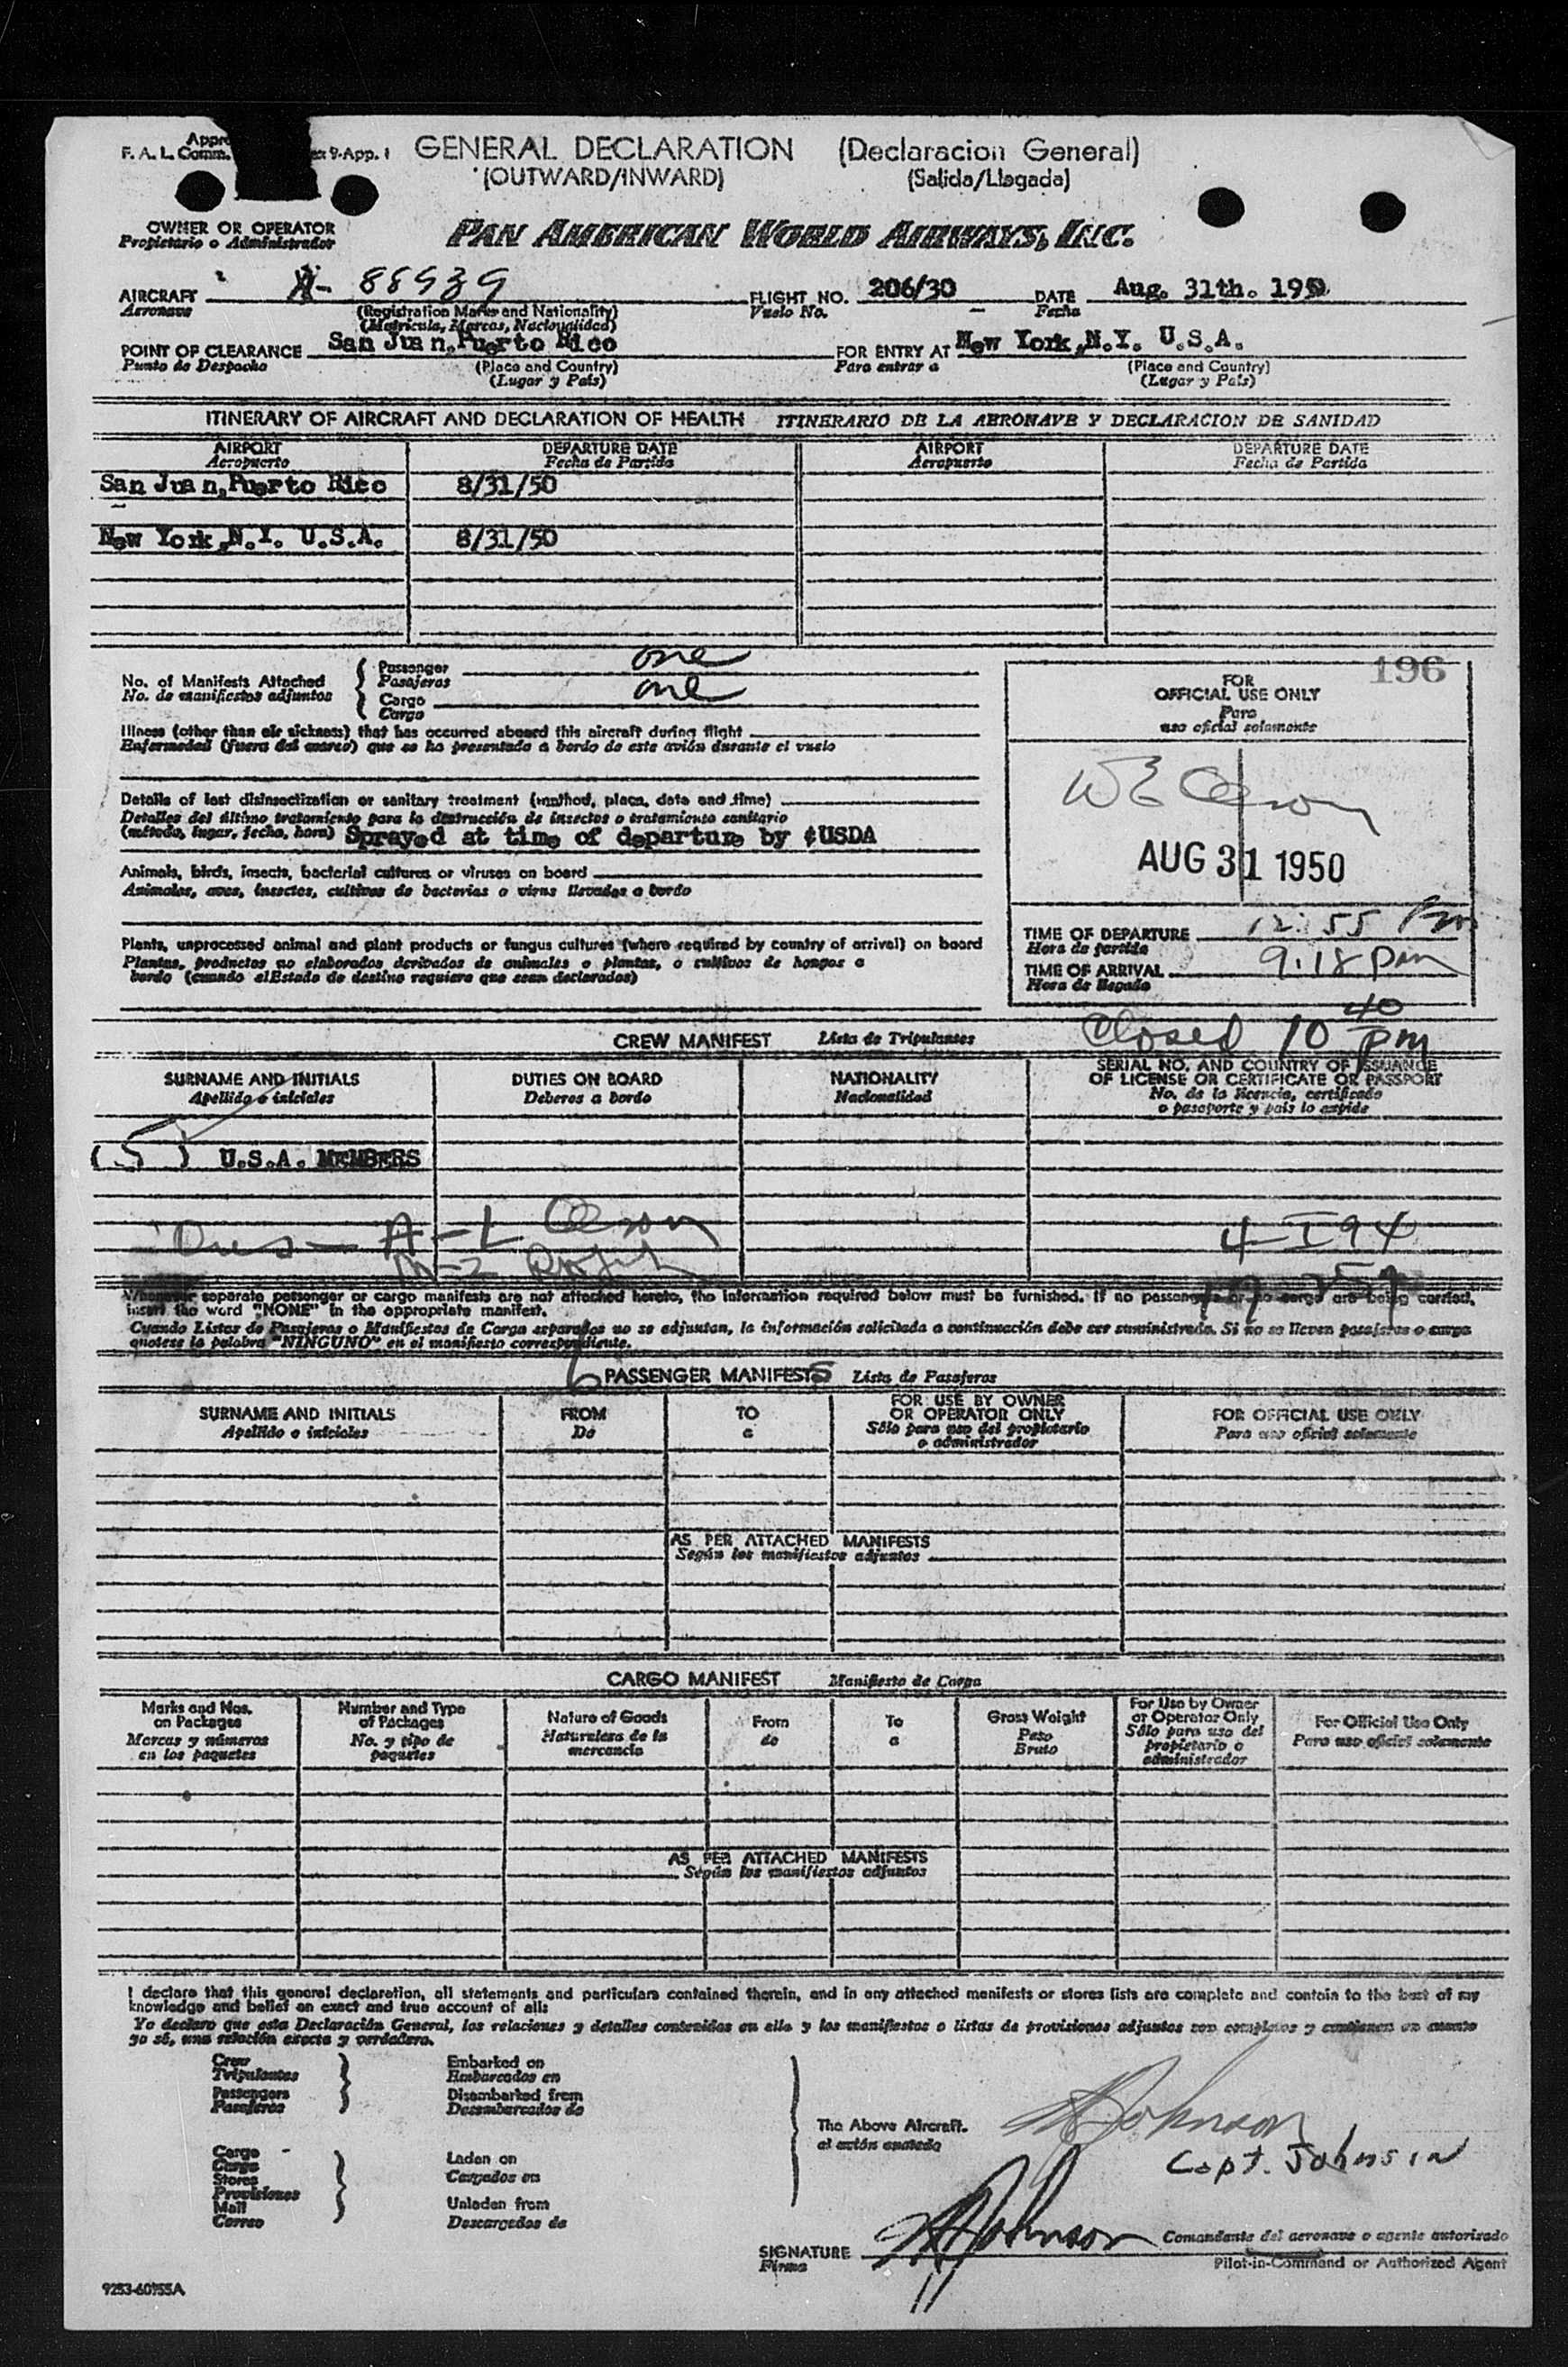 F. A. L. Comm. 9-App. 1
GENERAL DECLARATION (Declaracion General)
(OUTWARD/INWARD) (Salida/Llegada)
OWNER OR OPERATOR
Propietario o Administrador
PAN AMERICAN WORLD AIRWAYS, INC.
AIRCRAFT N- 88939 FLIGHT NO. 206/30 DATE Aug. 31th. 1950
Aeronave (Registration Marks and Nationality) Vuelo No. Fecha
(Matricula, Marcas, Nacionalidad)
POINT OF CLEARANCE San Juan,Puerto Rico FOR ENTRY AT New York,N.Y. U.S.A.
Punto de Despacho (Place and Country) Para entrar a (Place and Country)
(Lugar y País) (Lugar y País)
ITINERARY OF AIRCRAFT AND DECLARATION OF HEALTH ITINERARIO DE LA AERONAVE Y DECLARACION DE SANIDAD
AIRPORT DEPARTURE DATE AIRPORT DEPARTURE DATE
Aeropuerto Fecha de Partida Aeropuerto Fecha de Partida
San Juan,Puerto Rico 8/31/50
New York,N.Y. U.S.A. 8/31/50
No. of Manifests Attached Passenger one
No. de manifiestos adjuntos Pasajeros
Cargo one
Cargo
Illness (other than air sickness) that has occurred aboard this aircraft during flight
Enfermedad (fuera del mareo) que se ha presentado a bordo de este avión durante el vuelo
Details of last disinsectization or sanitary treatment (method, place, date and time)
Detalles del último tratamiento para la destrucción de insectos o tratamiento sanitario
(método, lugar, fecha, hora) Sprayed at time of departure by USDA
Animals, birds, insects, bacterial cultures or viruses on board
Animales, aves, insectos, cultivos de bacterias o virus llevados a bordo
Plants, unprocessed animal and plant products or fungus cultures (where required by country of arrival) on board
Plantas, productos no elaborados derivados de animales o plantas, o cultivos de hongos a
bordo (cuando elEstado de destino requiere que sean declarados)
196
FOR
OFFICIAL USE ONLY
Para
uso oficial solamente
AUG 31 1950
TIME OF DEPARTURE 12:55 Pm
Hora de partida
TIME OF ARRIVAL 9:18 pm
Hora de llegada
Closed 10 40 pm
CREW MANIFEST Lista de Tripulantes
SURNAME AND INITIALS DUTIES ON BOARD NATIONALITY SERIAL NO. AND COUNTRY OF ISSUANCE
OF LICENSE OR CERTIFICATE OR PASSPORT
Apellido e iniciales Deberes a bordo Nacionalidad No. de la licencia, certificado
o pasaporte y país lo expide
(5) U.S.A. MEMBERS
Whenever separate passenger or cargo manifests are not attached hereto, the information required below must be furnished. If no passengers or no cargo are being carried,
insert the word "NONE" in the appropriate manifest.
Cuando Listas de Pasajeros o Manifiestos de Carga separados no se adjuntan, la información solicitada a continuación debe ser suministrada. Si no se lleven pasajeros o carga
quotese la palabra "NINGUNO" en el manifiesto correspondiente.
PASSENGER MANIFESTS Lista de Pasajeros
SURNAME AND INITIALS FROM TO FOR USE BY OWNER
OR OPERATOR ONLY FOR OFFICIAL USE ONLY
Apellido e iniciales De a Sólo para uso del propietario
o administrador Para uso oficial solamente
AS PER ATTACHED MANIFESTS
Según los manifiestos adjuntos
CARGO MANIFEST Manifiesto de Carga
Marks and Nos.
on Packages
Marcas y números
en los paquetes
Number and Type
of Packages
No. y tipo de
paquetes
Nature of Goods
Naturaleza de la
mercancia
From
de
To
a
Gross Weight
Peso
Bruto
For Use by Owner
or Operator Only
Sólo para uso del
propietario o
administrador
For Official Use Only
Para uso oficial solamente
AS PER ATTACHED MANIFESTS
Según los manifiestos adjuntos
I declare that this general declaration, all statements and particulars contained therein, and in any attached manifests or stores lists are complete and contain to the best of my
knowledge and belief an exact and true account of all:
Yo declaro que esta Declaración General, las relaciones y detalles contenidos en ella y los manifiestos o listas de provisiones adjuntos son completos y contienen en cuanto
yo sé, una relación exacta y verdadera.
Crew
Tripulantes
Passengers
Pasajeros
Embarked on
Embarcados en
Disembarked from
Desembarcados de
Cargo
Carga
Stores
Provisiones
Mail
Correo
Laden on
Cargados en
Unladen from
Descargados de
The Above Aircraft.
el avión anotado
Johnson
Capt. Johnsin
SIGNATURE Johnson
Firma
Comandante del aeronave o agente autorizado
Pilot-in-Command or Authorized Agent
9253-60755A